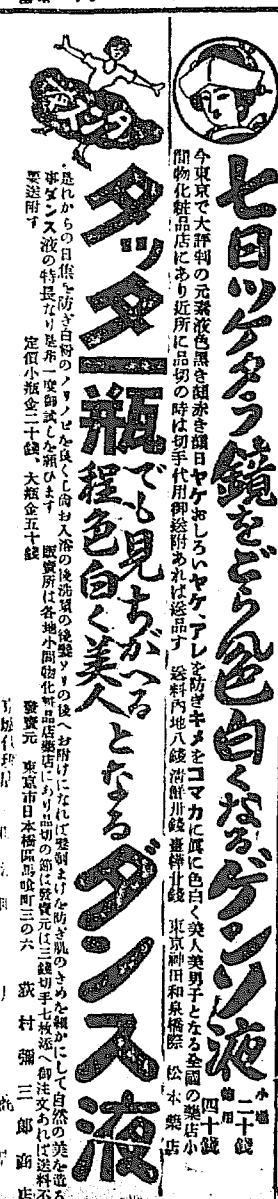 七日ツケタラ鏡をどら色白くなるゲンソ液
小瓶 二十錢
徳用 四十錢
今東京で大評判の元素液色黒き顔赤き顔日ヤケおしろいヤケ、アレを防ぎキメをコマカに眞に色白く美人美男子となる全國の藥店小
間物化粧品店にあり近所に品切の時は切手代用御送附あれば送品す 送料内地八錢 滿鮮卅錢 臺樺廿錢 東京神田和泉橋際 松本藥店
ダンス
タッター瓶でも見ちがへる
程色白く美人となるダンス液
是れからの日焦を防ぎ白粉のノリノビを良くし尚お入浴の後洗顔の後髭ソリの後へお附けになれば髭剃まけを防ぎ肌のきめを細かにして自然の美を造る
事ダンス液の特長なり是非一度御試しを願ひます 販賣所は各地小間物化粧品店藥店にあり品切の節は發賣元は三錢切手七枚添へ御注文あれば送料不
要送附す 定價小瓶金二十錢、大瓶金五十錢
發賣元 東京市日本橋區馬喰町三の六 荻村彌三郎商店